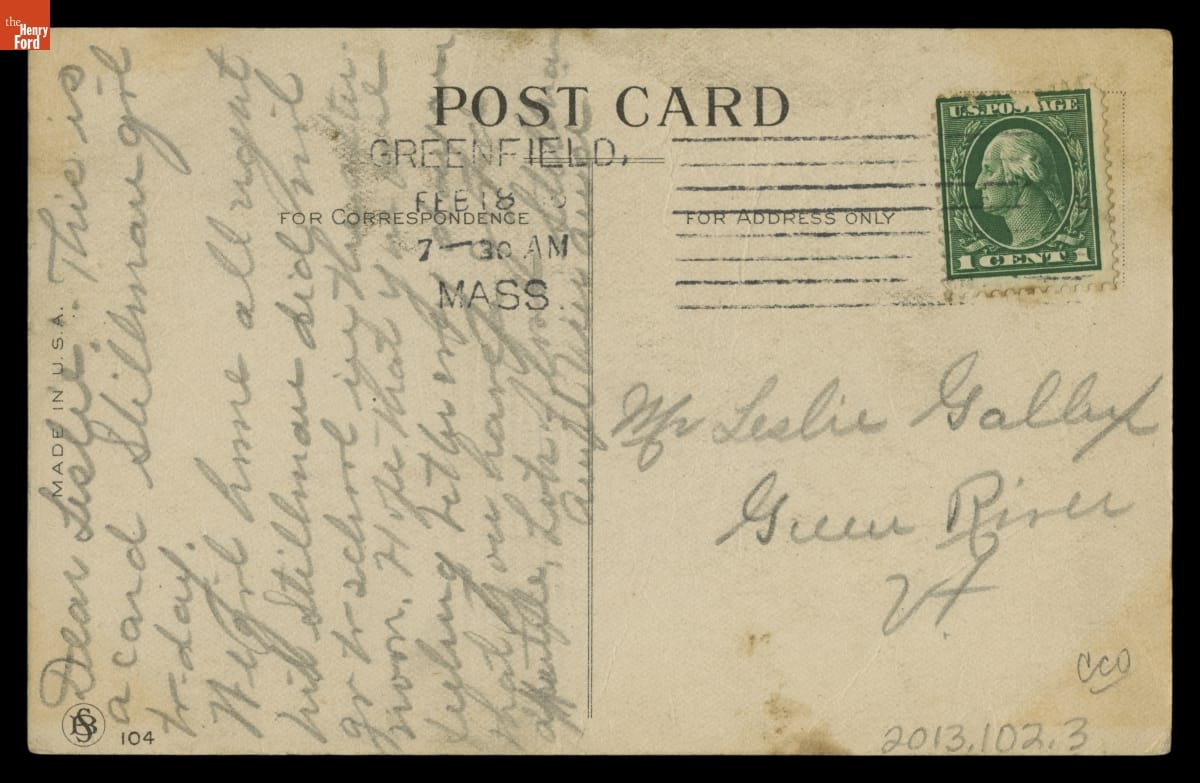 the
Henry
Ford
POST CARD
GREENFIELD,
FEB 18
7-30 AM
MASS.
FOR CORRESPONDENCE
FOR ADDRESS ONLY
U.S. POSTAGE
1 CENT 1
MADE IN U.S.A.
Dear Leslie. This is
a card Stillman girl
to-day.
We got home all right
but Stillman did not
go to school in the
noon. Hope that you are
feeling better and
that you have
appetite, Lots of love
Mr Leslie Gallup
Green River
Vt
SB
104
CCO
2013.102.3